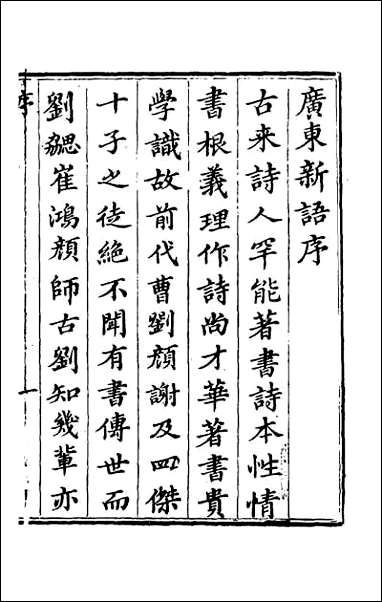 廣東新語序
古来詩人罕能著書詩本性情
書根義理作詩尚才華著書貴
學識故前代曹劉顏謝及四傑
十子之徒絶不聞有書傳世而
劉勰崔鴻顏師古劉知幾輩亦
序
一